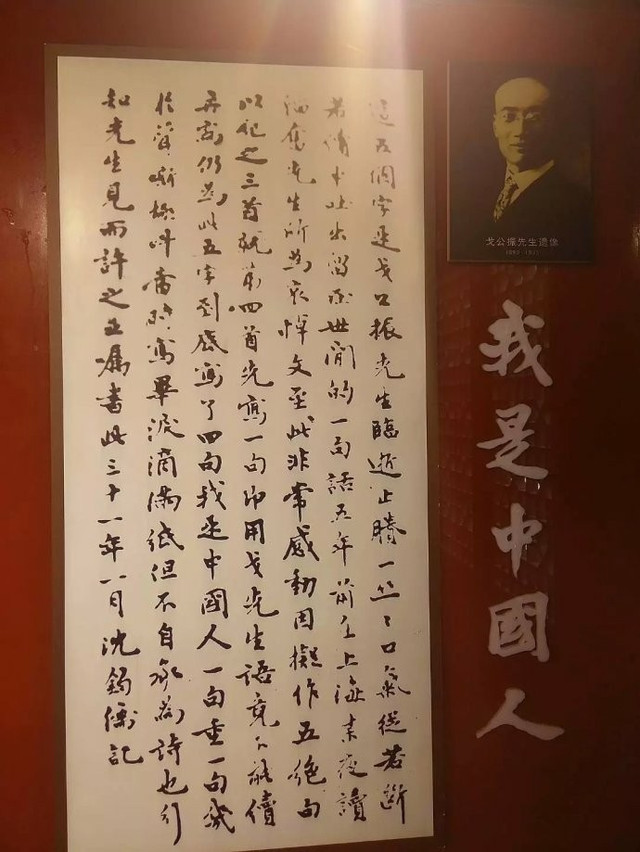 戈公振先生遺像
我是中國人
這五個字是戈公振先生臨逝止賸一丝々口氣從若断
若續中吐出留於世間的一句話五年前在上海夜讀
韜奮先生所為哀悼文至此非常感動因擬作五絕句
以記之三首就第四首先寫一句即用戈先生語竟不能續
再寫仍為此五字到底寫了四句我是中國人一句重一句幾
於聲嘶極叫當時寫畢淚滴滿紙但不自承為詩也引
知先生見而許之且屬書此三十一年一月沈鈞儒記